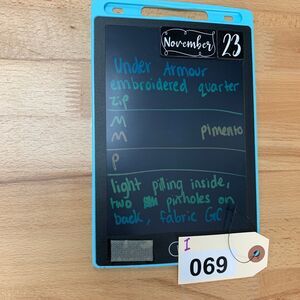 November 23
Under Armour
embroidered quarter
zip
M
M pimento
P
light pilling inside,
two pinholes on
back, fabric GC
I
069